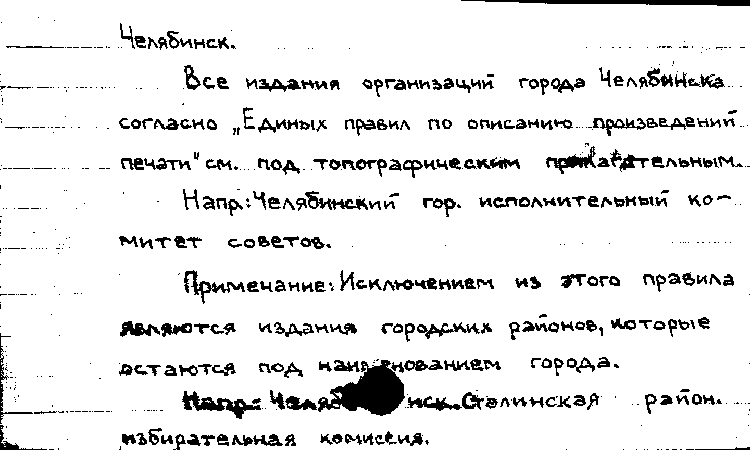 Челябинск.
Все издания организаций города Челябинска
согласно „Единых правил по описанию произведений
печати" см. под топографическим прилагательным.
Напр.: Челябинский гор. исполнительный ко-
митет советов.
Примечание: Исключением из этого правила
являются издания городских районов, которые
остаются под наименованием города.
Напр.: Челябинск. Сталинская район.
избирательная комиссия.